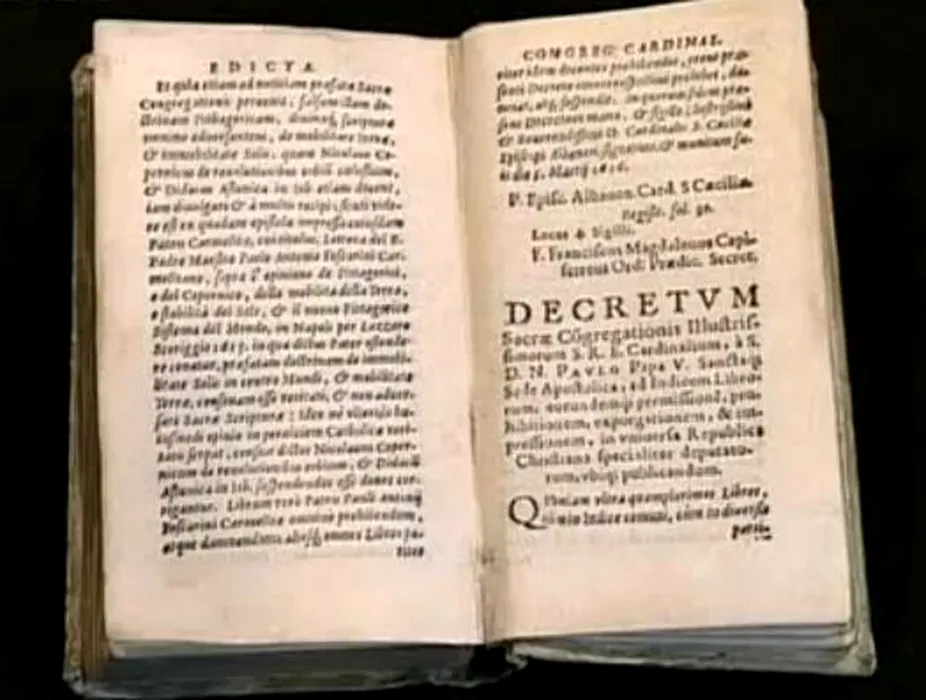 EDICTA
Et quia etiam ad notitiam præfatæ Sacræ
Congregationis pervenit, falsam illam do-
ctrinam Pithagoricam, divinæq; scripturæ
omnino adversantem, de mobilitate Terræ,
& immobilitate Solis, quam Nicolaus Co-
pernicus de revolutionibus orbiū cœlestium,
& Didacus Astunica in Iob etiam docent,
iam divulgari & à multis recipi, sicuti vide-
re est ex quadam epistola impressa cuiusdam
Patris Carmelitæ, cui titulus, Lettera del R.
Padre Maestro Paolo Antonio Foscarini Car-
melitano, sopra l'opinione de Pittagorici,
e del Copernico, della mobilità della Terra,
e stabilità del Sole, & il nuovo Pittagorico
Sistema del Mondo, in Napoli per Lazzaro
Scoriggio 1615. in qua dictus Pater ostende-
re conatur, præfatam doctrinam de immobi-
litate Solis in centro Mundi, & mobilitate
Terræ, consonam esse veritati, & non adver-
sari Sacræ Scripturæ: Ideo
opinio in perniciem Catholicæ veri-
tatis serpat, censuit dictos Nicolaum Coper-
nicum de revolutionibus orbium, & Didacū
Astunica in Iob, suspendendos esse donec cor-
rigantur. Librum verò Patris Pauli Antonij
Foscarini Carmelitæ omnino prohibendum,
atque damnandum, aliosq; omnes Libros pa-
riter
CONGREG. CARDINAL.
riter idem docentes prohibendos, prout præ-
senti Decreto omnes respectivè prohibet, da-
mnat, atq; suspendit. In quorum fidem præ-
sens Decretum manu, & sigillo Illustrissimi
& Reverendissimi D. Cardinalis S. Cæciliæ
Episcopi Albanen. signatum, & munitum fu-
it die 5. Martij 1616.
P. Episc. Albanen. Card. S. Cæciliæ
Registr. fol. 90.
Locus ✠ Sigilli.
F. Franciscus Magdalenus Capi-
ferreus Ord. Prædic. Secret.
DECRETVM
Sacræ Cōgregationis Illustris-
simorum S. R. E. Cardinalium, à S.
D. N. PAVLO Papa V. Sanctaq;
Sede Apostolica, ad Indicem Libro-
rum, eorundemq; permissionē, pro-
hibitionem, expurgationem, & im-
pressionem, in universa Republica
Christiana specialiter deputato-
rum, vbiq; publicandum.
Quoniam vltra quamplurimos Libros,
Indice cum in diversis
parti-